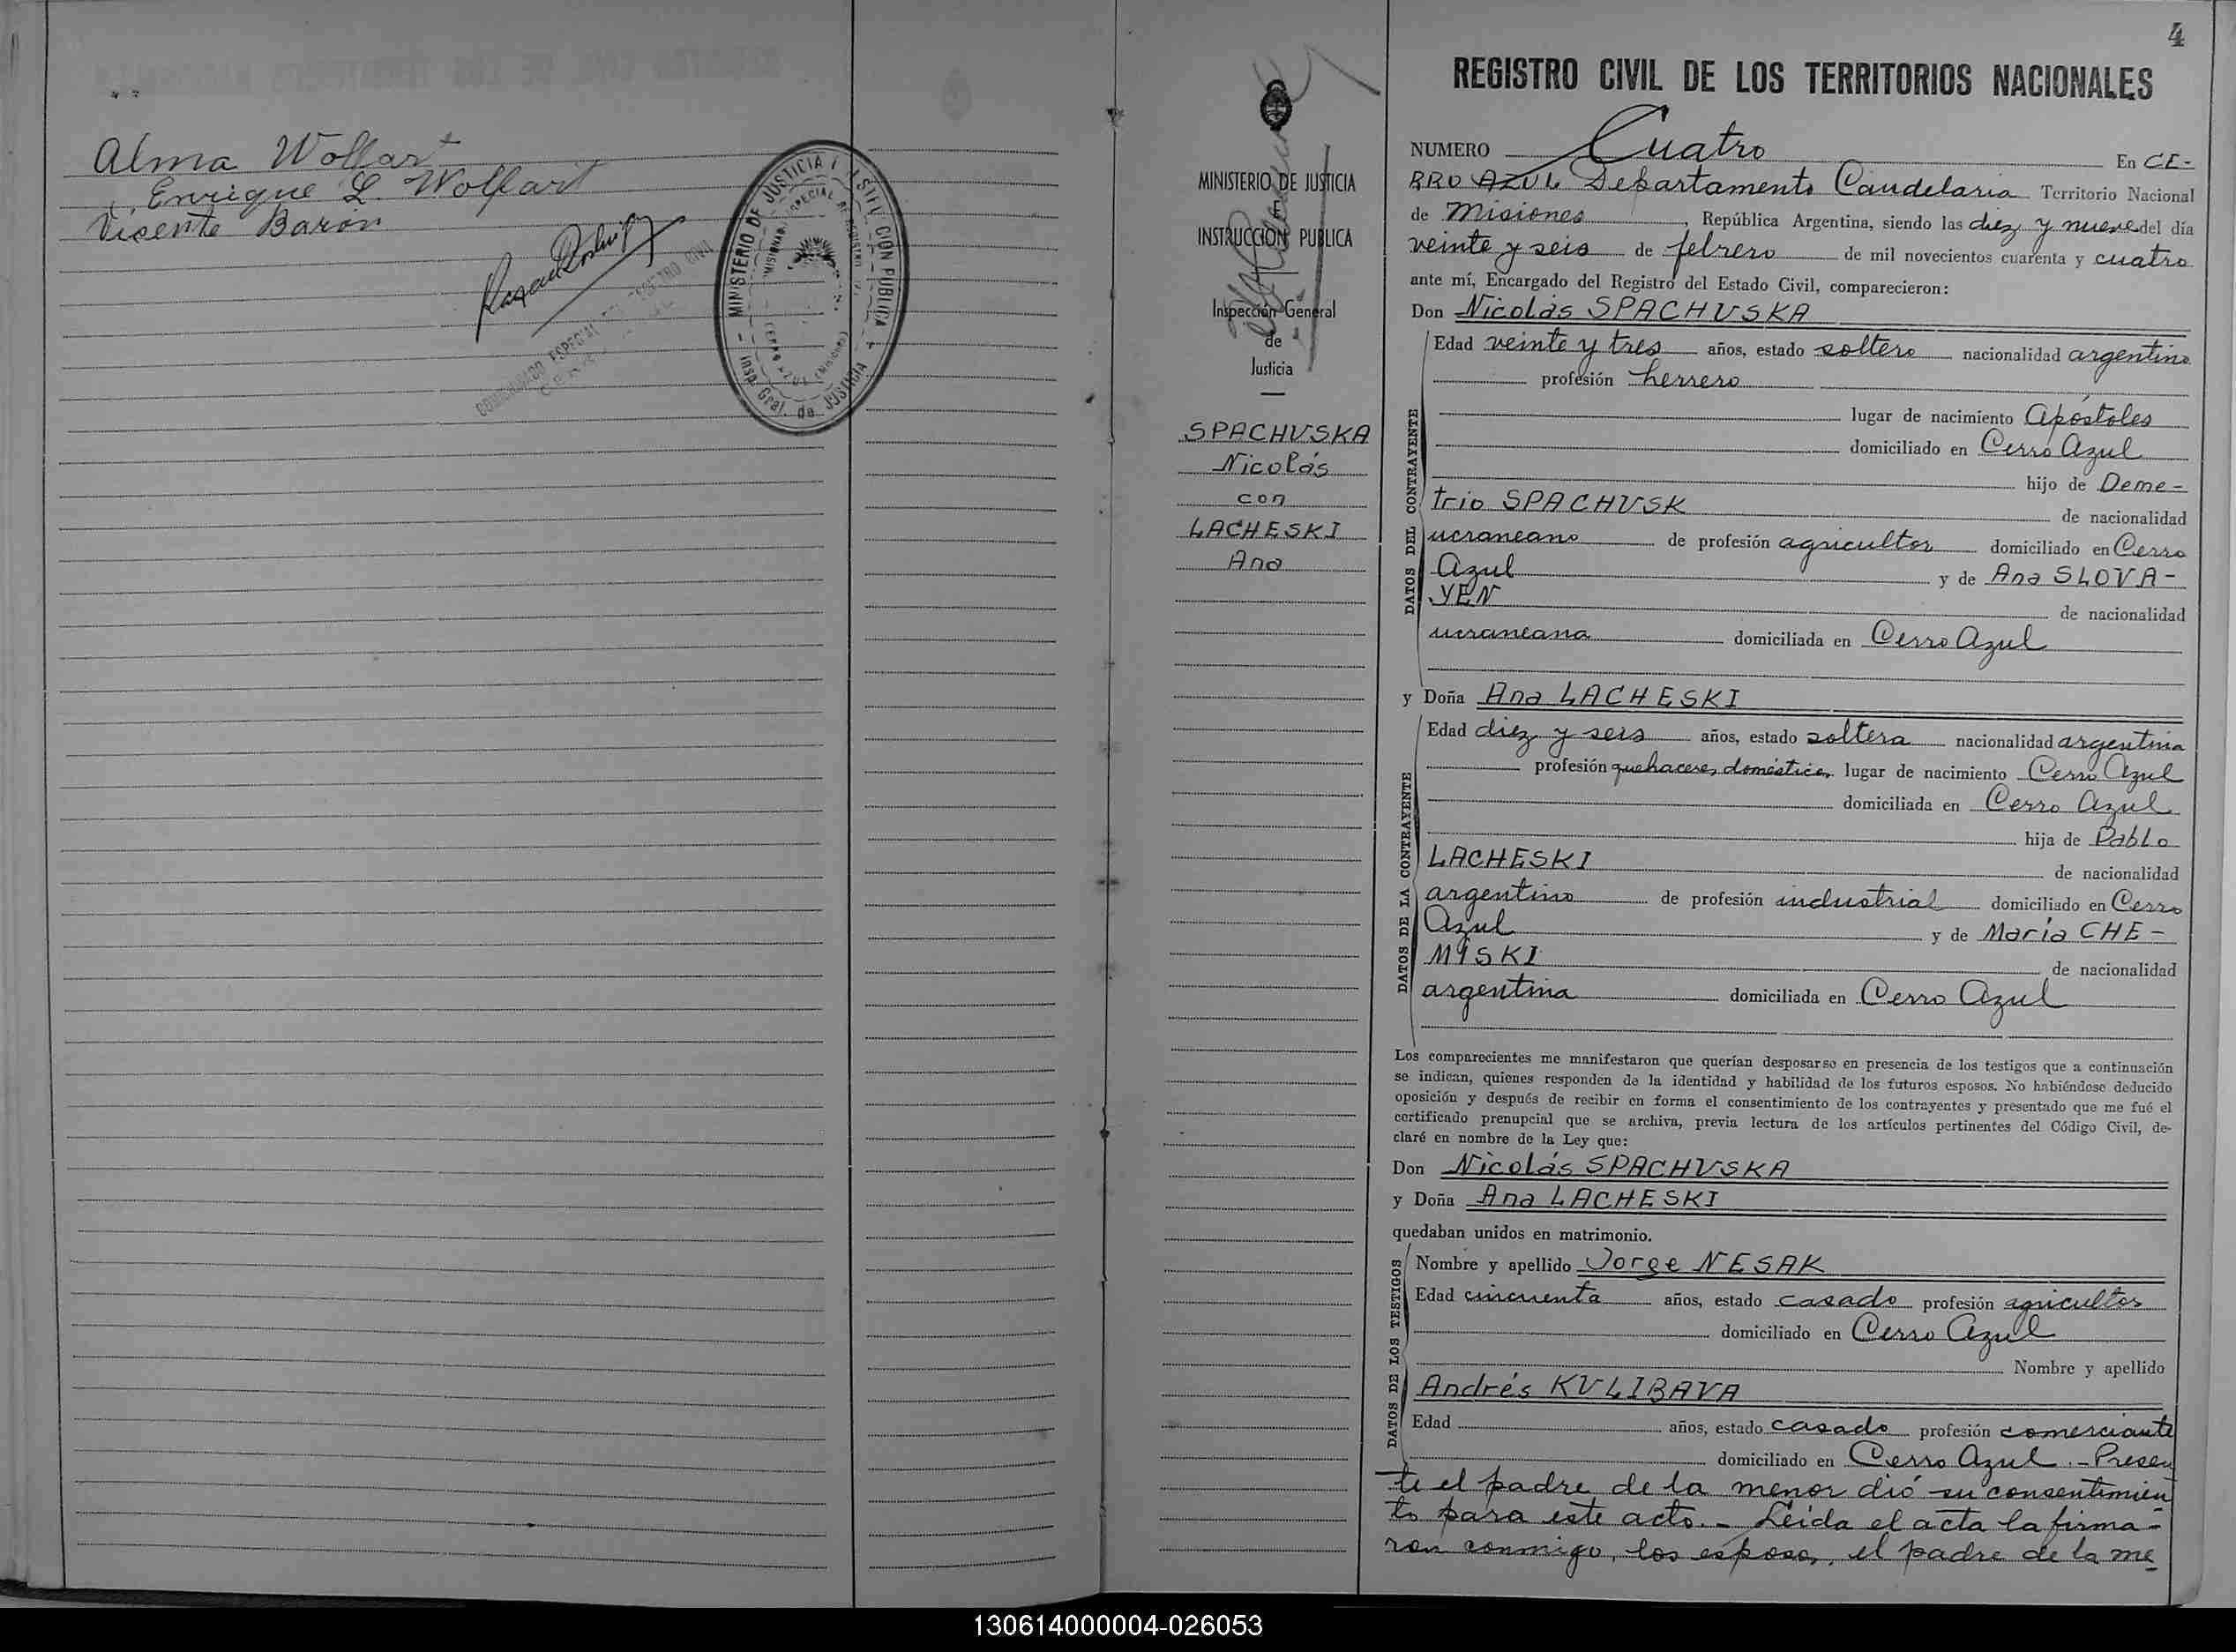 Alma Wolfart
Enrique L. Wolfart
Vicente Barón
COMISIONADO ESPECIAL DEL REGISTRO CIVIL
MINISTERIO DE JUSTICIA I INSTRUCCION PUBLICA
Insp. Gral. de JUSTICIA
4
MINISTERIO DE JUSTICIA
E
INSTRUCCION PUBLICA
Inspección General
de
Justicia
SPACHUSKA
Nicolás
con
LACHESKI
Ana
REGISTRO CIVIL DE LOS TERRITORIOS NACIONALES
NUMERO Cuatro En CE-
RRO AZUL Departamento Candelaria Territorio Nacional
de Misiones, República Argentina, siendo las diez y nueve del día
veinte y seis de febrero de mil novecientos cuarenta y cuatro
ante mí, Encargado del Registro del Estado Civil, comparecieron:
Don Nicolás SPACHUSKA
DATOS DEL CONTRAYENTE
Edad veinte y tres años, estado soltero nacionalidad argentino
profesión herrero
lugar de nacimiento Apóstoles
domiciliado en Cerro Azul
hijo de Deme-
trio SPACHUSK de nacionalidad
ucraneano de profesión agricultor domiciliado en Cerro
Azul y de Ana SLOVA-
YEN de nacionalidad
ucraneana domiciliada en Cerro Azul
y Doña Ana LACHESKI
DATOS DE LA CONTRAYENTE
Edad diez y seis años, estado soltera nacionalidad argentina
profesión quehaceres domésticos lugar de nacimiento Cerro Azul
domiciliada en Cerro Azul
hija de Pablo
LACHESKI de nacionalidad
argentino de profesión industrial domiciliado en Cerro
Azul y de María CHE-
MISKI de nacionalidad
argentina domiciliada en Cerro Azul
Los comparecientes me manifestaron que querían desposarse en presencia de los testigos que a continuación
se indican, quienes responden de la identidad y habilidad de los futuros esposos. No habiéndose deducido
oposición y después de recibir en forma el consentimiento de los contrayentes y presentado que me fué el
certificado prenupcial que se archiva, previa lectura de los artículos pertinentes del Código Civil, de-
claré en nombre de la Ley que:
Don Nicolás SPACHUSKA
y Doña Ana LACHESKI
quedaban unidos en matrimonio.
DATOS DE LOS TESTIGOS
Nombre y apellido Jorge NESAK
Edad cincuenta años, estado casado profesión agricultor
domiciliado en Cerro Azul
Nombre y apellido
Andrés KULIBAVA
Edad años, estado casado profesión comerciante
domiciliado en Cerro Azul.- Presen
te el padre de la menor dió su consentimien
to para este acto.- Leida el acta la firma-
ron conmigo, los esposos, el padre de la me-
130614000004-026053